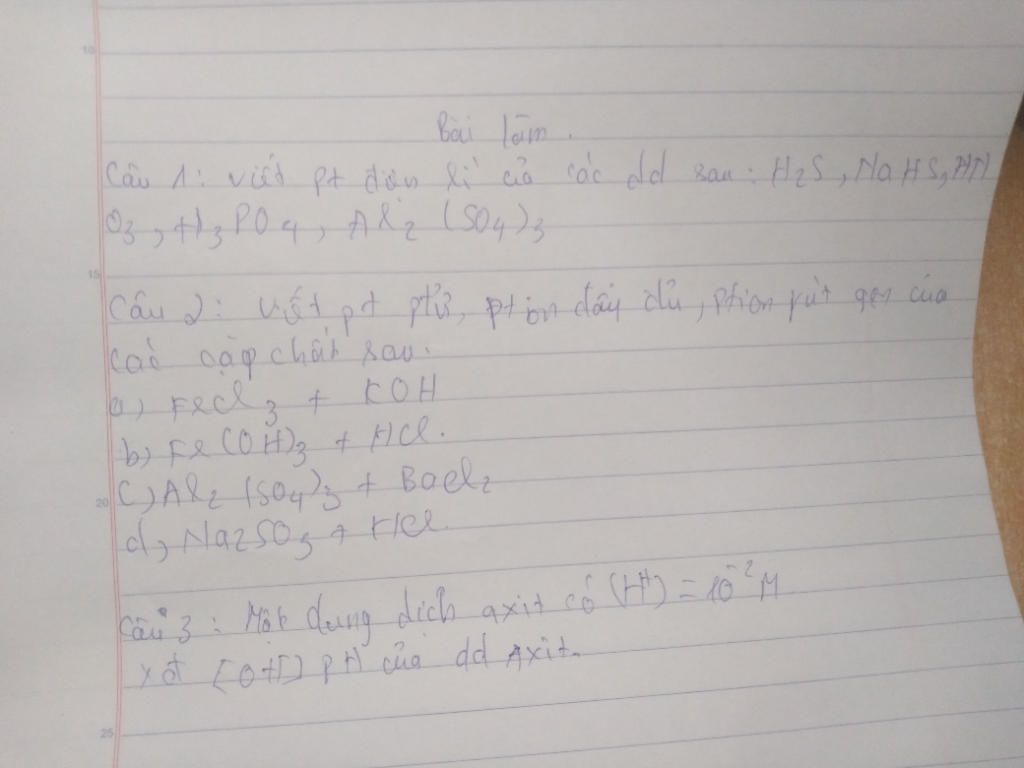 10
Bài làm.
Câu 1: viết pt điện li của các dd sau: H2S, NaHS, HN
O3, H3PO4, Al2(SO4)3
15
Câu 2: viết pt ptử, pt ion đầy đủ, ption rút gọn của
các cặp chất sau.
a) FeCl3 + KOH
b) Fe(OH)3 + HCl.
20
c) Al2(SO4)3 + BaCl2
d) Na2SO3 + HCl.
Câu 3: Một dung dịch axit có (H+) = 10^-2 M
xđ [OH-] pH của dd Axit.
25